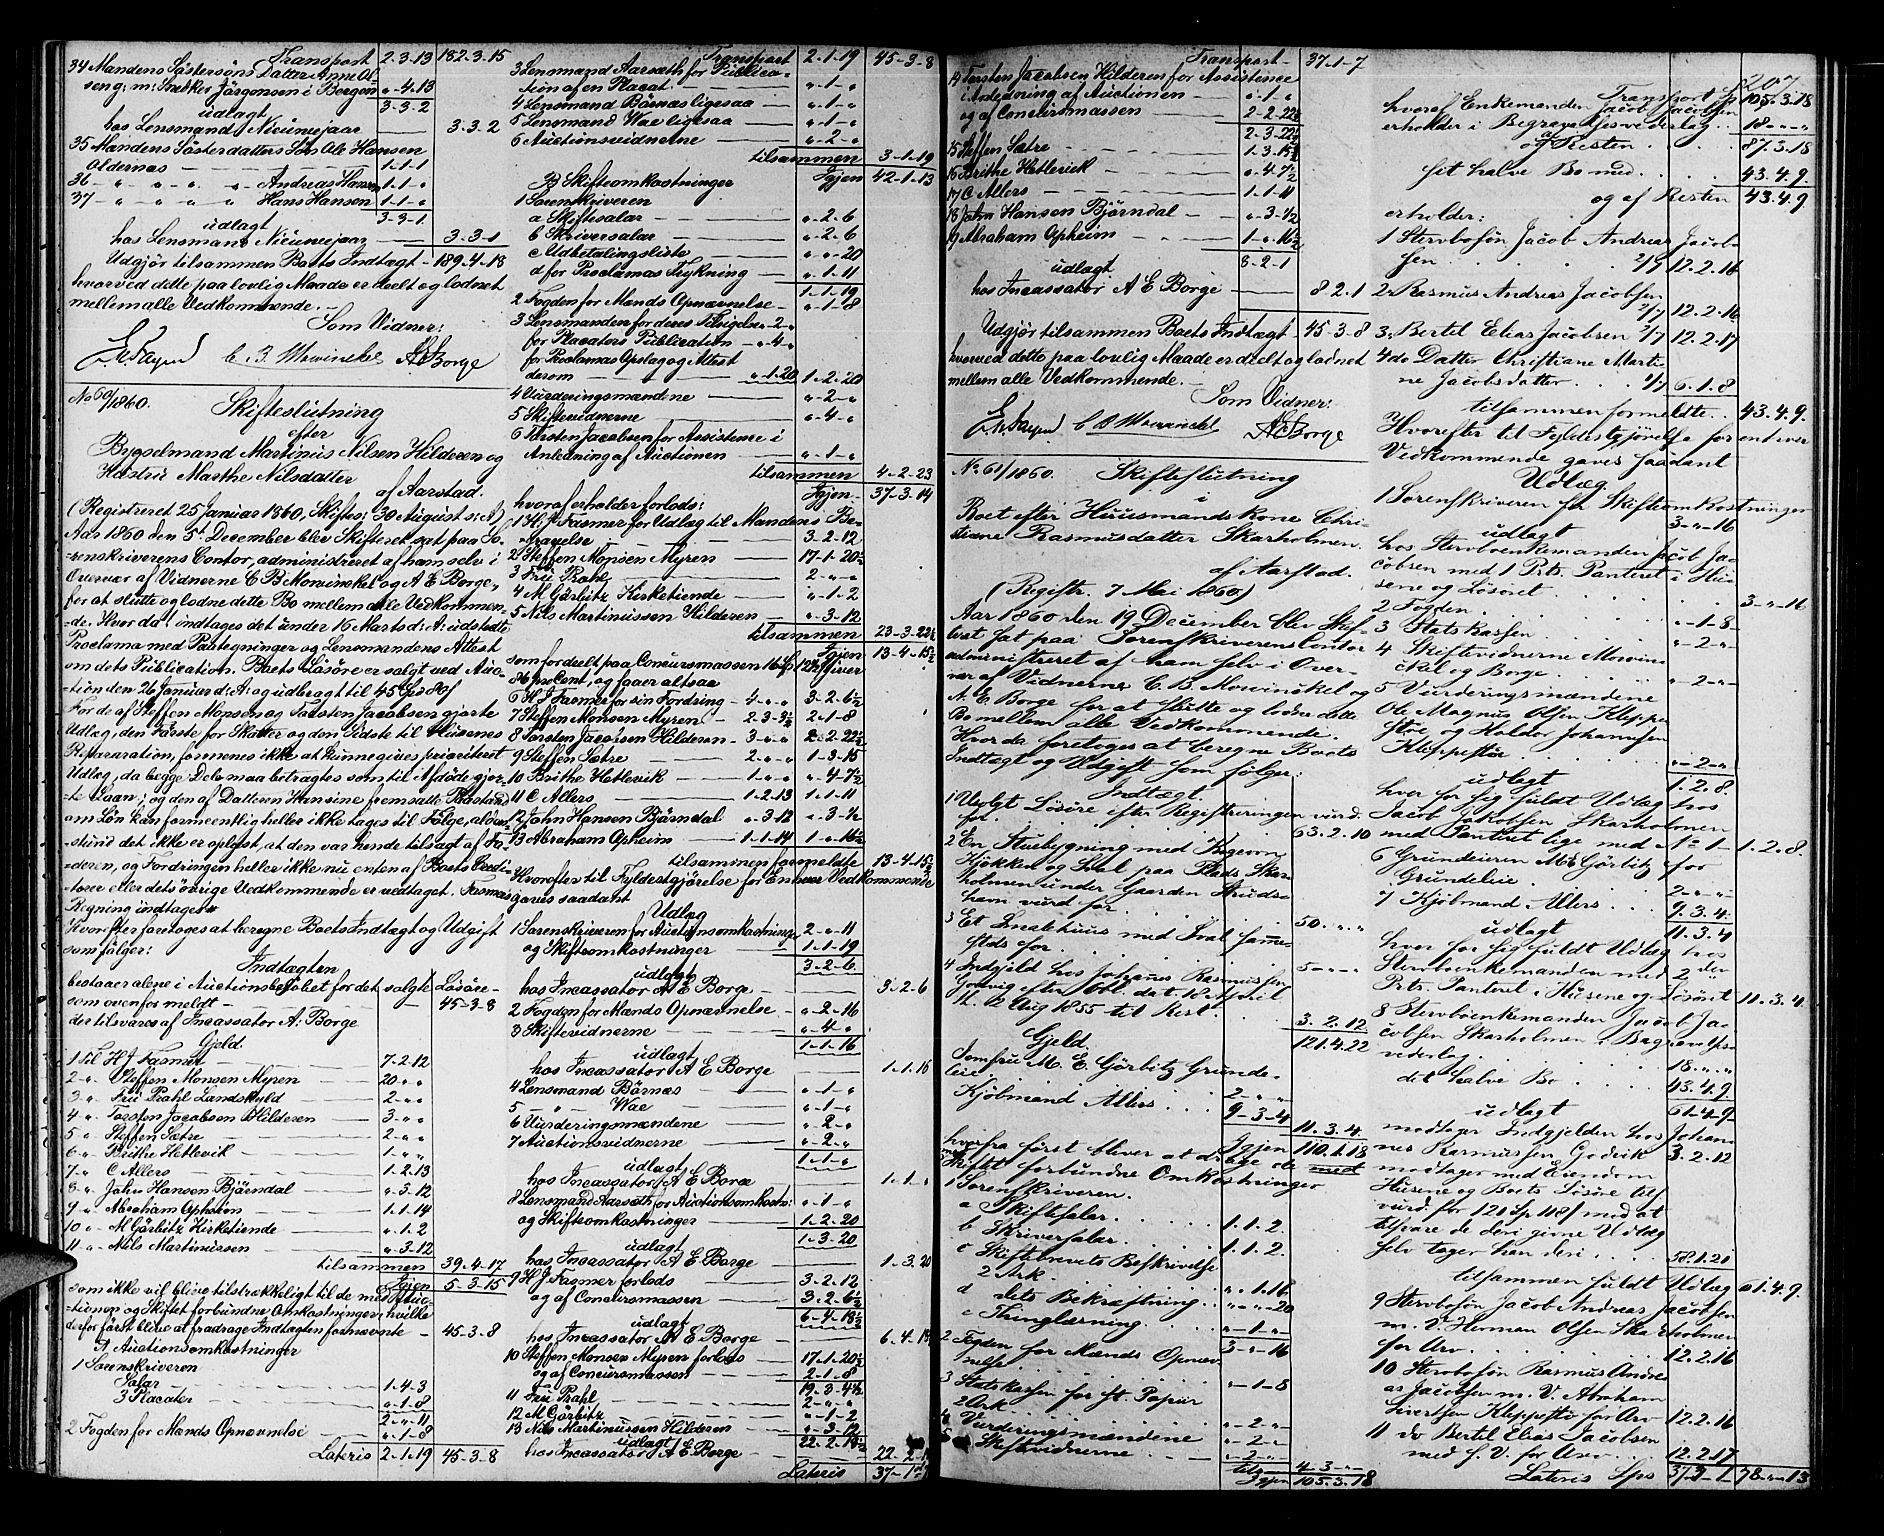 Transport 2-3-13 182-3-15
34 Mandens Söstersöns Datter Anne Ol-
seng, m: Snekker Jörgensen i Bergen „-4-13
3-3-2
udlagt
hos Lensmand Nicunejaar — 3-3-2
35 Mandens Sösterdatters Sön Ole Hansen
Oldernæs — 1-1-1
36 — „ — „ — „ Andreas Hansen 1-1-„
37 — „ „ „ „ Hans Hansen 1-1-„
3-3-1
udlagt
hos Lensmand Nicuneejaar — 3-3-1
Udgjör tilsammen Boets Indtægt - 189-4-18
hvorved dette paa lovlig Maade er deelt og lodnet
mellem alle Vedkommende. —
Som Vidner:
C. B. Mowinckel AEBorge
No 60/1860. Skifteslutning
efter
Bygselmand Martinus Nilsen Hilderen og
Hustru Marthe Nilsdatter
af Aarstad.
(Registreret 25 Januar 1860, Skiftes: 30 August s: A)
Aar 1860 den 5t December blev Skifteret sat paa So-
renskriverens Contor, administreret af ham selv i
Overvær af Vidnerne C B Mowinckel og A E Borge,
for at slutte og lodne dette Bo mellem alle Vedkommen-
de. Hvor da indtages det under 16 Marts d: A: udstedte
Proclama med Paategninger og Lensmandens Attest
om dets Publication. Boets Lösöre er solgt ved Auc-
tion den 26 Januar d: A: og udbragt til 45
For de af Steffen Monsen og Torsten Jacobsen gjorte
Udlæg, den Förste for Skatter og den Sidste til Husenes
Reparation, formenes ikke at kunne gives prioriteret
Udlæg, da begge Dele maa betragtes som til Afdöde gjor-
te Laan; og den af Datteren Hansine fremsatte Paastand
om Lön kan formeentlig heller ikke tages til Fölge, alden-
stund det ikke er oplyst, at den var hende tilsagt af Fa-
deren, og Fordringen heller ikke nu enten af Boets Credi-
torer eller dets övrige Vedkommende er vedtaget.
Regning indtages
Hvorefter foretoges at beregne Boets Indtægt og Udgift
som fölger:
Indtægten
bestaaer alene i Auctionsbelöbet for det solgte Lösöre
som ovenfor meldt — 45-3-8
der tilsvares af Incassator A: Borge
Gjeld.
1 Til H J Fasmer — 7-2-12
2 „ Steffen Monsen Myren 20 „ „
3 „ Frue Prahl Landskyld 2 „ „
4 „ Torsten Jacobsen Hilderen 3-„ „
5 „ Steffen Sætre 2-„ „
6 „ Brithe Hetlevik — 1-„ „
7 „ C Allers — 1-2-13
8 „ John Hansen Björndal — „-3-12
9 „ Abraham Opheim — 1-1-14
10 „ M Görbitz Kirketiende „-1-2
11 „ Nils Martinussen — „-3-12
tilsammen 39-4-17
Igjen 5-3-15
som ikke vil blive tilstrækkeligt til de med Auc-
tionen og Skiftet forbundne Omkostninger, hvilke
derfor först blive at fradrage Indtægten fornævnte 45-3-8
A Auctionsomkostninger
1 Sorenskriveren
Salær — 1-4-3
3 Placater — „-1-8
2-„-11
2 Fogden for Mænds Opnævnelse „-1-8
Lateris 2-1-19 45-3-8
Transport 2-1-19 45-3-8
3 Lensmand Aarsæth for Publica-
tion af en Placat — „-1-„
4 Lensmand Börnæs ligesaa — „-1-„
5 Lensmand Wae ligesaa — „-1-„
6 Auctionsvidnerne — „-2-„
tilsammen 3-1-19
Igjen 42-1-13
B Skifteomkostninger
1 Sorenskriveren
a Skiftesalær — „-2-6
b Skriversalær — „-2-6
c Udbetalingsliste — „-„-20
d for Proclamas Trykning — „-1-11
1-1-19
2 Fogden for Mænds Opnævnelse — „-1-8
3 Lensmanden for deres Tilsigelse „-2-„
for Placaters Publication — „-4-„
for Proclamas Opslag og Attest
derom — „-1-20 1-2-20
4 Vurderingsmændene — „-2-„
5 Skiftevidnerne — „-4-„
6 Torsten Jacobsen for Assistence i
Anledning af Auctionen — „-1-„
tilsammen 4-2-23
Igjen 37-3-14
hvoraf erholder forlods:
1 H J Fasmer for Udlæg til Mandens Be-
gravelse — 3-2-12
2 Steffen Monsen Myren 17-1-20½
3 Frue Prahl — 2-„-„
4 M Görbitz Kirketiende — „-1-2
5 Nils Martinussen Hilderen — „-3-12
tilsammen 23-3-22½
Igjen 13-4-15½
som fordeelt paa Concursmassen
procent, og faaer altsaa
6 H J Fasmer for sin Fordring — 4-„-„ 3-2-6½
7 Steffen Monsen Myren — 2-3-3½ 2-1-8
8 Torsten Jacobsen Hilderen — 3-„-„ 2-2-22½
9 Steffen Sætre — 2-„-„ 1-3-15
10 Brithe Hetlevik — 1-„-„ „-4-7½
11 C Allers — 1-2-13 1-1-11
12 John Hansen Björndal — „-3-12 „-3-½
13 Abraham Opheim — 1-1-14 1-„-16½
tilsammen formeldte 13-4-15½
Hvorefter til Fyldestgjörelse for Enhver Vedkommende
gaves saadant
Udlæg
1 Sorenskriveren for Auctionsomkostninger 2-„-11
og Skifteomkostninger 1-1-19
3-2-6
udlagt
hos Incassator A E Borge — 3-2-6
2 Fogden for Mænds Opnævnelse — „-2-16
3 Skiftevidnerne — „-4-„
1-1-16
udlagt
hos Incassator A E Borge 1-1-16
4 Lensmand Börnæs — „-1-„
5 — „ Wae — „-1-„
6 Vurderingsmændene — „-2-„
7 Auctionsvidnerne — „-2-„
1-1-„
udlagt
hos Incassator A E Borge 1-1-„
8 Lensmand Aarsæth for Auctionsomkostn: „-1-„
og Skifteomkostninger — 1-2-20
1-3-20
udlagt
hos Incassator A E Borge — 1-3-20
9 H J Fasmer forlods — 3-2-12
og af Concursmassen — 3-2-6½
6-4-18½
udlagt
hos Incassator A E Borge
10 Steffen Monsen Myren forlods — 17-1-20½
og af Concursmassen — 2-1-8
19-3-4½
11 Frue Prahl — 2-„-„
12 M Görbitz — „-1-2
13 Nils Martinussen Hilderen — „-3-12
22-2-18½
udlagt
hos Incassator A E Borge — 22-2-
Lateris 37-1-
Transport 37-1-7
14 Torsten Jacobsen Hilderen for Assistence
i Anledning af Auctionen — „-1-„
og af Concursmassen 2-2-22½
2-3-22½
15 Steffen Sætre — 1-3-15½
16 Brithe Hetlevik — „-4-7½
17 C Allers — 1-1-11
18 John Hansen Björndal — „-3-½
19 Abraham Opheim — 1-„-16½
8-2-1
udlagt
hos Incassator A E Borge — 8-2-1
Udgjör tilsammen Boets Indtægt 45-3-8
hvorved dette paa lovlig Maade er deelt og lodnet
mellem alle Vedkommende. —
Som Vidner:
C B Mowinckel AEBorge
No 61/1860. Skifteslutning
i
Boet efter Huusmandskone Chri-
stiane Rasmusdatter Skarholmen
af Aarstad.
(Registr. 7 Mai 1860)
Aar 1860 den 19 December blev Skif-
teret sat paa Sorenskriverens Contor
administreret af ham selv i Over-
vær af Vidnerne C. B. Mowinckel og
A. E. Borge for at slutte og lodne dette
Bo mellem alle Vedkommende.
Hvor da foretoges at beregne Boets
Indtægt og Udgift som fölger:
Indtægt.
1 Usolgt Lösöre efter Registreringen vurd.
for 63.2.10
2 En Stuebygning med
Kjökken og Sval paa Plads Skar-
holmen under Gaarden
vurd for 50.„.„
3 Et Smalehuus med Sval samme-
steds for 5-„-„
4 Indgjeld hos Johannes Rasmussen
Godvig efter Obl. dat. 10 April
tl. 2 Aug 1855 til Rest 3.2.12
121.4.22
Gjeld.
Jomfru M. E. Görbitz Grunde-
leie 2-„-„
Kjöbmand Allers 9-3-4
11.3.4
Igjen 110.1.18
hvorfra först bliver at drage de med
Skiftet forbundne Omkostninger
1 Sorenskriveren.
a Skiftesalær 1.1.2
b Skriversalær 1.1.2
c Skiftebrevets Beskrivelse
2 Ark „.1.16
d dets Bekræftning „.„.20
e Thinglæsning „-1-„
3-„-16
2 Fogden for Mænds Opnæv-
nelse „-1-8
3 Statskassen for st. Papiir
2 Ark „-2-„
4 Vurderingsmændene „-2-„
5 Skiftevidnerne „-2-„
tils 4-3-„
Igjen 105.3.18
207.
Transport Sp 105.3.18
hvoraf Enkemanden Jacob Jacobsen
erholder i Begravelsesvederlag 18-„-„
af Resten 87.3.18
sit halve Bo med 43.4.9
og af Resten 43.4.9
erholder:
1 Stervbosön Jacob Andreas Jacob-
sen 2/7 12.2.16
2 Rasmus Andreas Jacobsen
2/7 12.2.16
3 Bertil Elias Jacobsen 2/7 12.2.17
4 do Datter Christiane Marti-
ne Jacobsdatter 1/7 6.1.8
tilsammen formeldte 43.4.9
Hvorefter til Fyldestgjörelse for enhver
Vedkommende gaves saadant
Udlæg
1 Sorenskriveren for Skifteomkostninger
3-„-16
udlagt
hos Stervboenkemanden Jacob Ja-
cobsen med 1 Prts. Panteret i Hu-
sene og Lösöret 3-„-16
2 Fogden „-1-8
3 Statskassen „-2-„
4 Skiftevidnerne Mowin-
ckel og Borge „-2-„
5 Vurderingsmændene
Ole Magnus Olsen Kleppe-
stöe, og Haldor Johannessen
Kleppestöe „-2-„
1.2.8.
udlagt
hver for sig fuldt Udlæg hos
Jacob Jakobsen Skarholmen
med Panteret lige med No 1 - 1.2.8.
6 Grundeieren M. Görbitz for
Grundeleie 2-„-„
7 Kjöbmand Allers 9.3.4
11.3.4
udlagt
hver for sig fuldt Udlæg hos
Stervboenkemanden med 2den
Prts. Panteret i Husene og Lösöret 11.3.4
8 Stervboenkemanden Jacob Ja-
cobsen Skarholmen i Begravelses-
vederlag 18.„.„
det halve Bo 43.4.9
61.4.9
udlagt
modtager Indgjelden hos Johan-
nes Rasmussen Godvik 3.2.12
modtager med Eiendom
Husene og Boets Lösöre til
vurd for med at
tilsvare de deri givne Udlæg
selv tager han deri 58.1.21
tilsammen fuldt Udlæg 61.4.9.
9 Stervbosön Jacob Andreas Jacobsen
m. V. Herman Olsen Skarholmen
for Arv 12.2.16
10 Stervbosön Rasmus Andre-
as Jacobsen m. V. Abraham
Sivertsen Kleppestö for Arv 12.2.16
11 do Bertel Elias Jacobsen
med s. V. for Arv 12.2.17
Lateris Sp 37-3-1 78-„-13